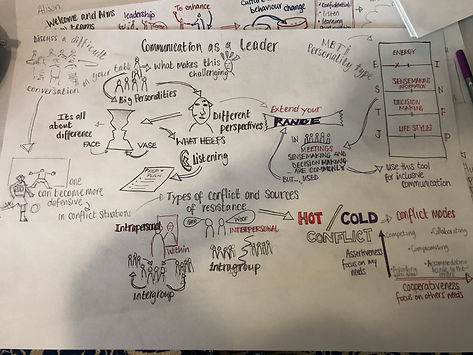 Alison
Welcome and Aims
leadership
To enhance
behaviour change
Communication as a Leader
Discuss a difficult
conversation
in your
table
what makes this
challenging
Big Personalities
MBTI
Personality type
ENERGY
E
I
S
SENSEMAKING
INFORMATION
N
T
DECISION
MAKING
F
J
LIFE STYLES
P
It's all
about
difference
FACE
VASE
Different
perspectives
WHAT HELPS
Listening
Extend your
RANGE
IN
MEETINGS
SENSEMAKING AND
DECISION MAKING ARE COMMONLY
USED
BUT
Use this tool
for inclusive
communication
one
can become more
defensive
in conflict situations
Types of conflict and sources
of resistance
Intrapersonal
within
INTERPERSONAL
Intergroup
Intragroup
HOT / COLD
CONFLICT
Conflict modes
Competing
Collaborating
Compromising
Accommodating
Assertiveness
focus on my
needs
Cooperativeness
focus on others needs